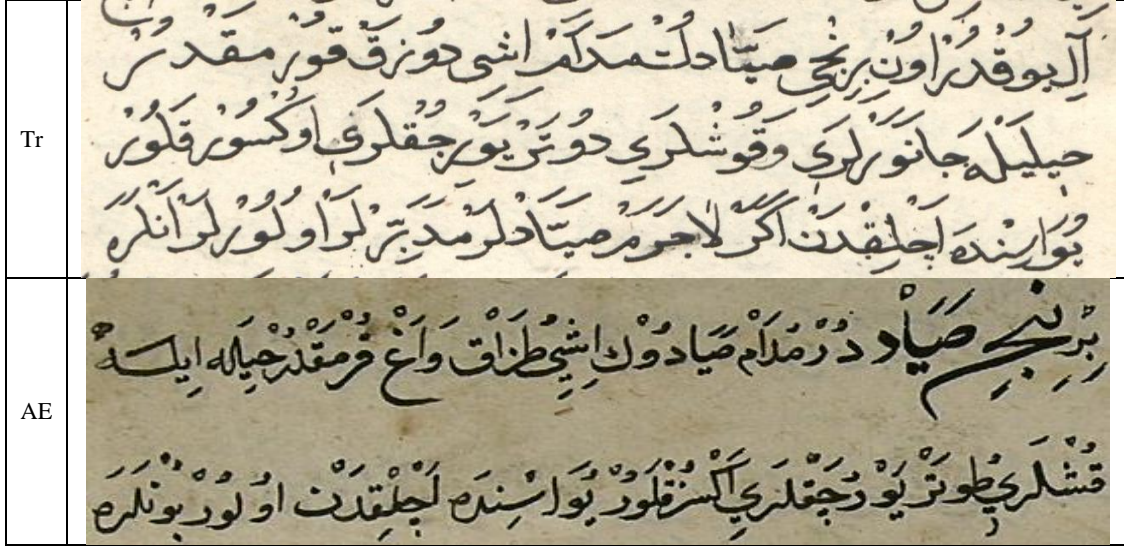 Tr
اَلْ بُو قُدُرْ اُونْ بِرِنْجِي صَيَّادلُتْ مَدَامْ اشِي دُوزَقْ قُورْمَقْدُرْ
حِيلَيْلَه جَانَوَرْلَرِي وَقُوشْلَرِي دُوتَرْ يَوْرُجُقْلَرِي اوُكْسُوزْ قَلُورْ
يُوَاسِنْدَه اَجْلِقْدَنْ اَكَرْ لاَجَرَمْ صَيَّادْلَرْ مُدَبِّرْلَرْ اوُلُورْلَرْ اَنْلَرَه
AE
بِرِنْجِي صَيَّادْ دُرْ مُدَامْ صَيَادُوكْ اِشِي طُزَاقْ وَاَغْ قُرْمَقْدُرْ حِيلَه
قُشْلَرِي طُوتَرْ يَوْرُجَقْلَرِي اُكْسُزْ قَلُورْ يُوَاسِنْدَه اَجْلِقْدَنْ اوُلُورْ بُونْلَرَه